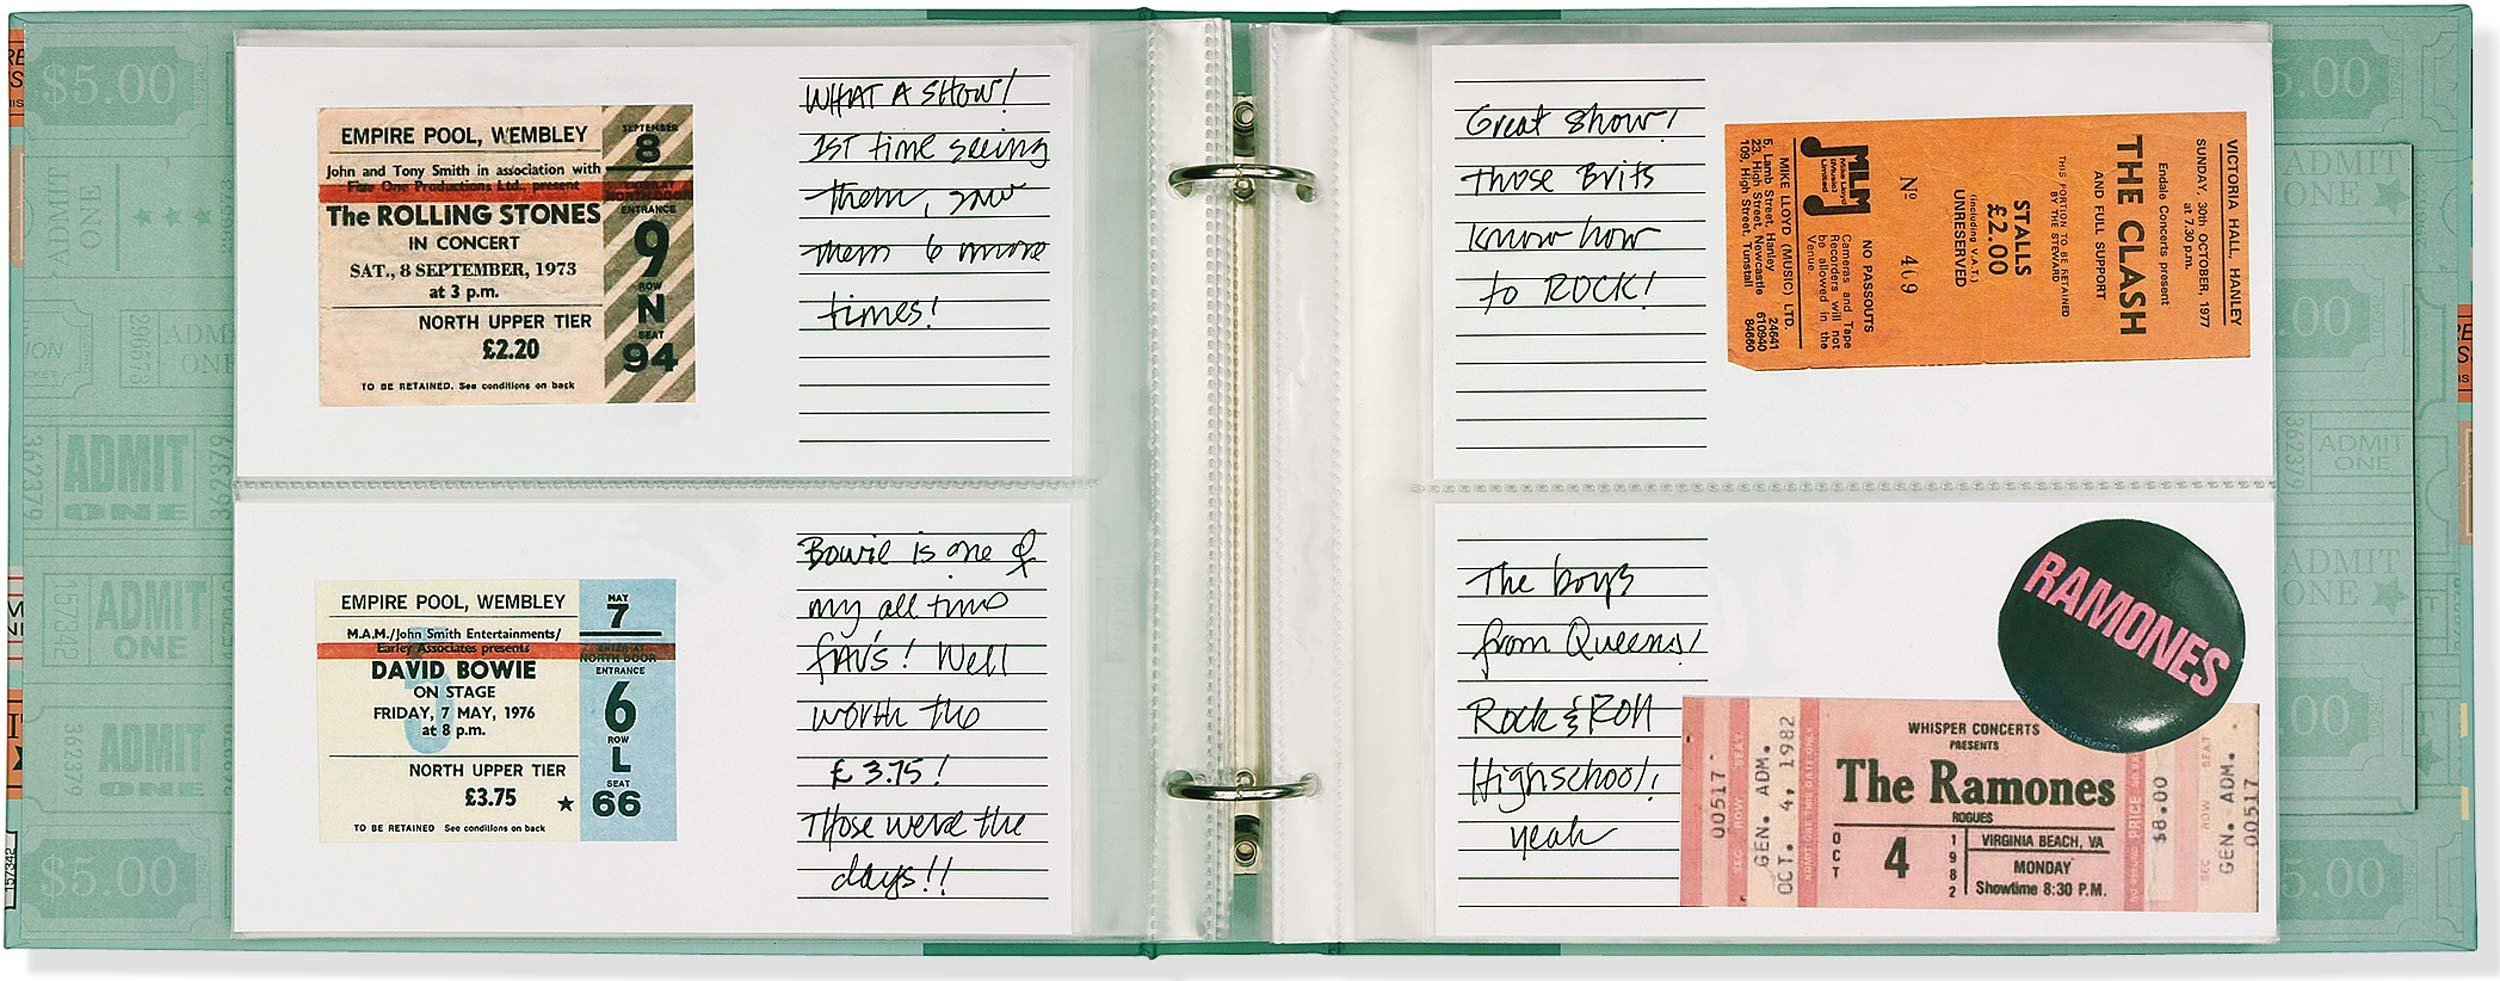 EMPIRE POOL, WEMBLEY
John and Tony Smith in association with
Five One Productions Ltd., present
The ROLLING STONES
IN CONCERT
SAT., 8 SEPTEMBER, 1973
at 3 p.m.
NORTH UPPER TIER
£2.20
TO BE RETAINED. See conditions on back
SEPTEMBER
8
ENTER AT
NORTH DOOR
ENTRANCE
9
ROW
N
SEAT
94
WHAT A SHOW!
1ST time seeing
them, saw
them 6 more
times!
EMPIRE POOL, WEMBLEY
M.A.M./John Smith Entertainments/
Earley Associates presents
DAVID BOWIE
ON STAGE
FRIDAY, 7 MAY, 1976
at 8 p.m.
NORTH UPPER TIER
£3.75 ★
TO BE RETAINED See conditions on back
MAY
7
ENTER AT
NORTH DOOR
ENTRANCE
6
ROW
L
SEAT
66
Bowie is one of
my all time
FAV'S! Well
worth the
£ 3.75!
Those were the
days!!
Great show!
Those Brits
know how
to ROCK!
VICTORIA HALL, HANLEY
SUNDAY, 30th OCTOBER, 1977
at 7.30 p.m.
Endale Concerts present
THE CLASH
AND FULL SUPPORT
THIS PORTION TO BE RETAINED
BY THE STEWARD
STALLS
£2.00
(including V.A.T.)
UNRESERVED
Nº 409
NO PASSOUTS
Cameras and Tape
Recorders will not
be allowed in the
Venue.
MLM
Mike Lloyd
(Music)
Limited
MIKE LLOYD (MUSIC) LTD.
5, Lamb Street, Hanley 24641
23, High Street, Newcastle 610940
109, High Street, Tunstall 84660
The boys
from Queens!
Rock & Roll
Highschool!
yeah
RAMONES
00517
SEC ROW SEAT
GEN. ADM.
OCT. 4, 1982
WHISPER CONCERTS
PRESENTS
The Ramones
ROGUES
OCT 4 1982
VIRGINIA BEACH, VA
MONDAY
Showtime 8:30 P.M.
$8.00
SEC ROW SEAT
GEN. ADM.
00517
$5.00
ADMIT
ONE
296573
ADMIT
ONE
362379
ADMIT
ONE
362379
157342
ADMIT
ONE
362379
ADMIT
ONE
$5.00
157342
5.00
ADMIT
ONE
.00
362379
ADMIT
ONE
ADMIT
ONE
.00
5.00